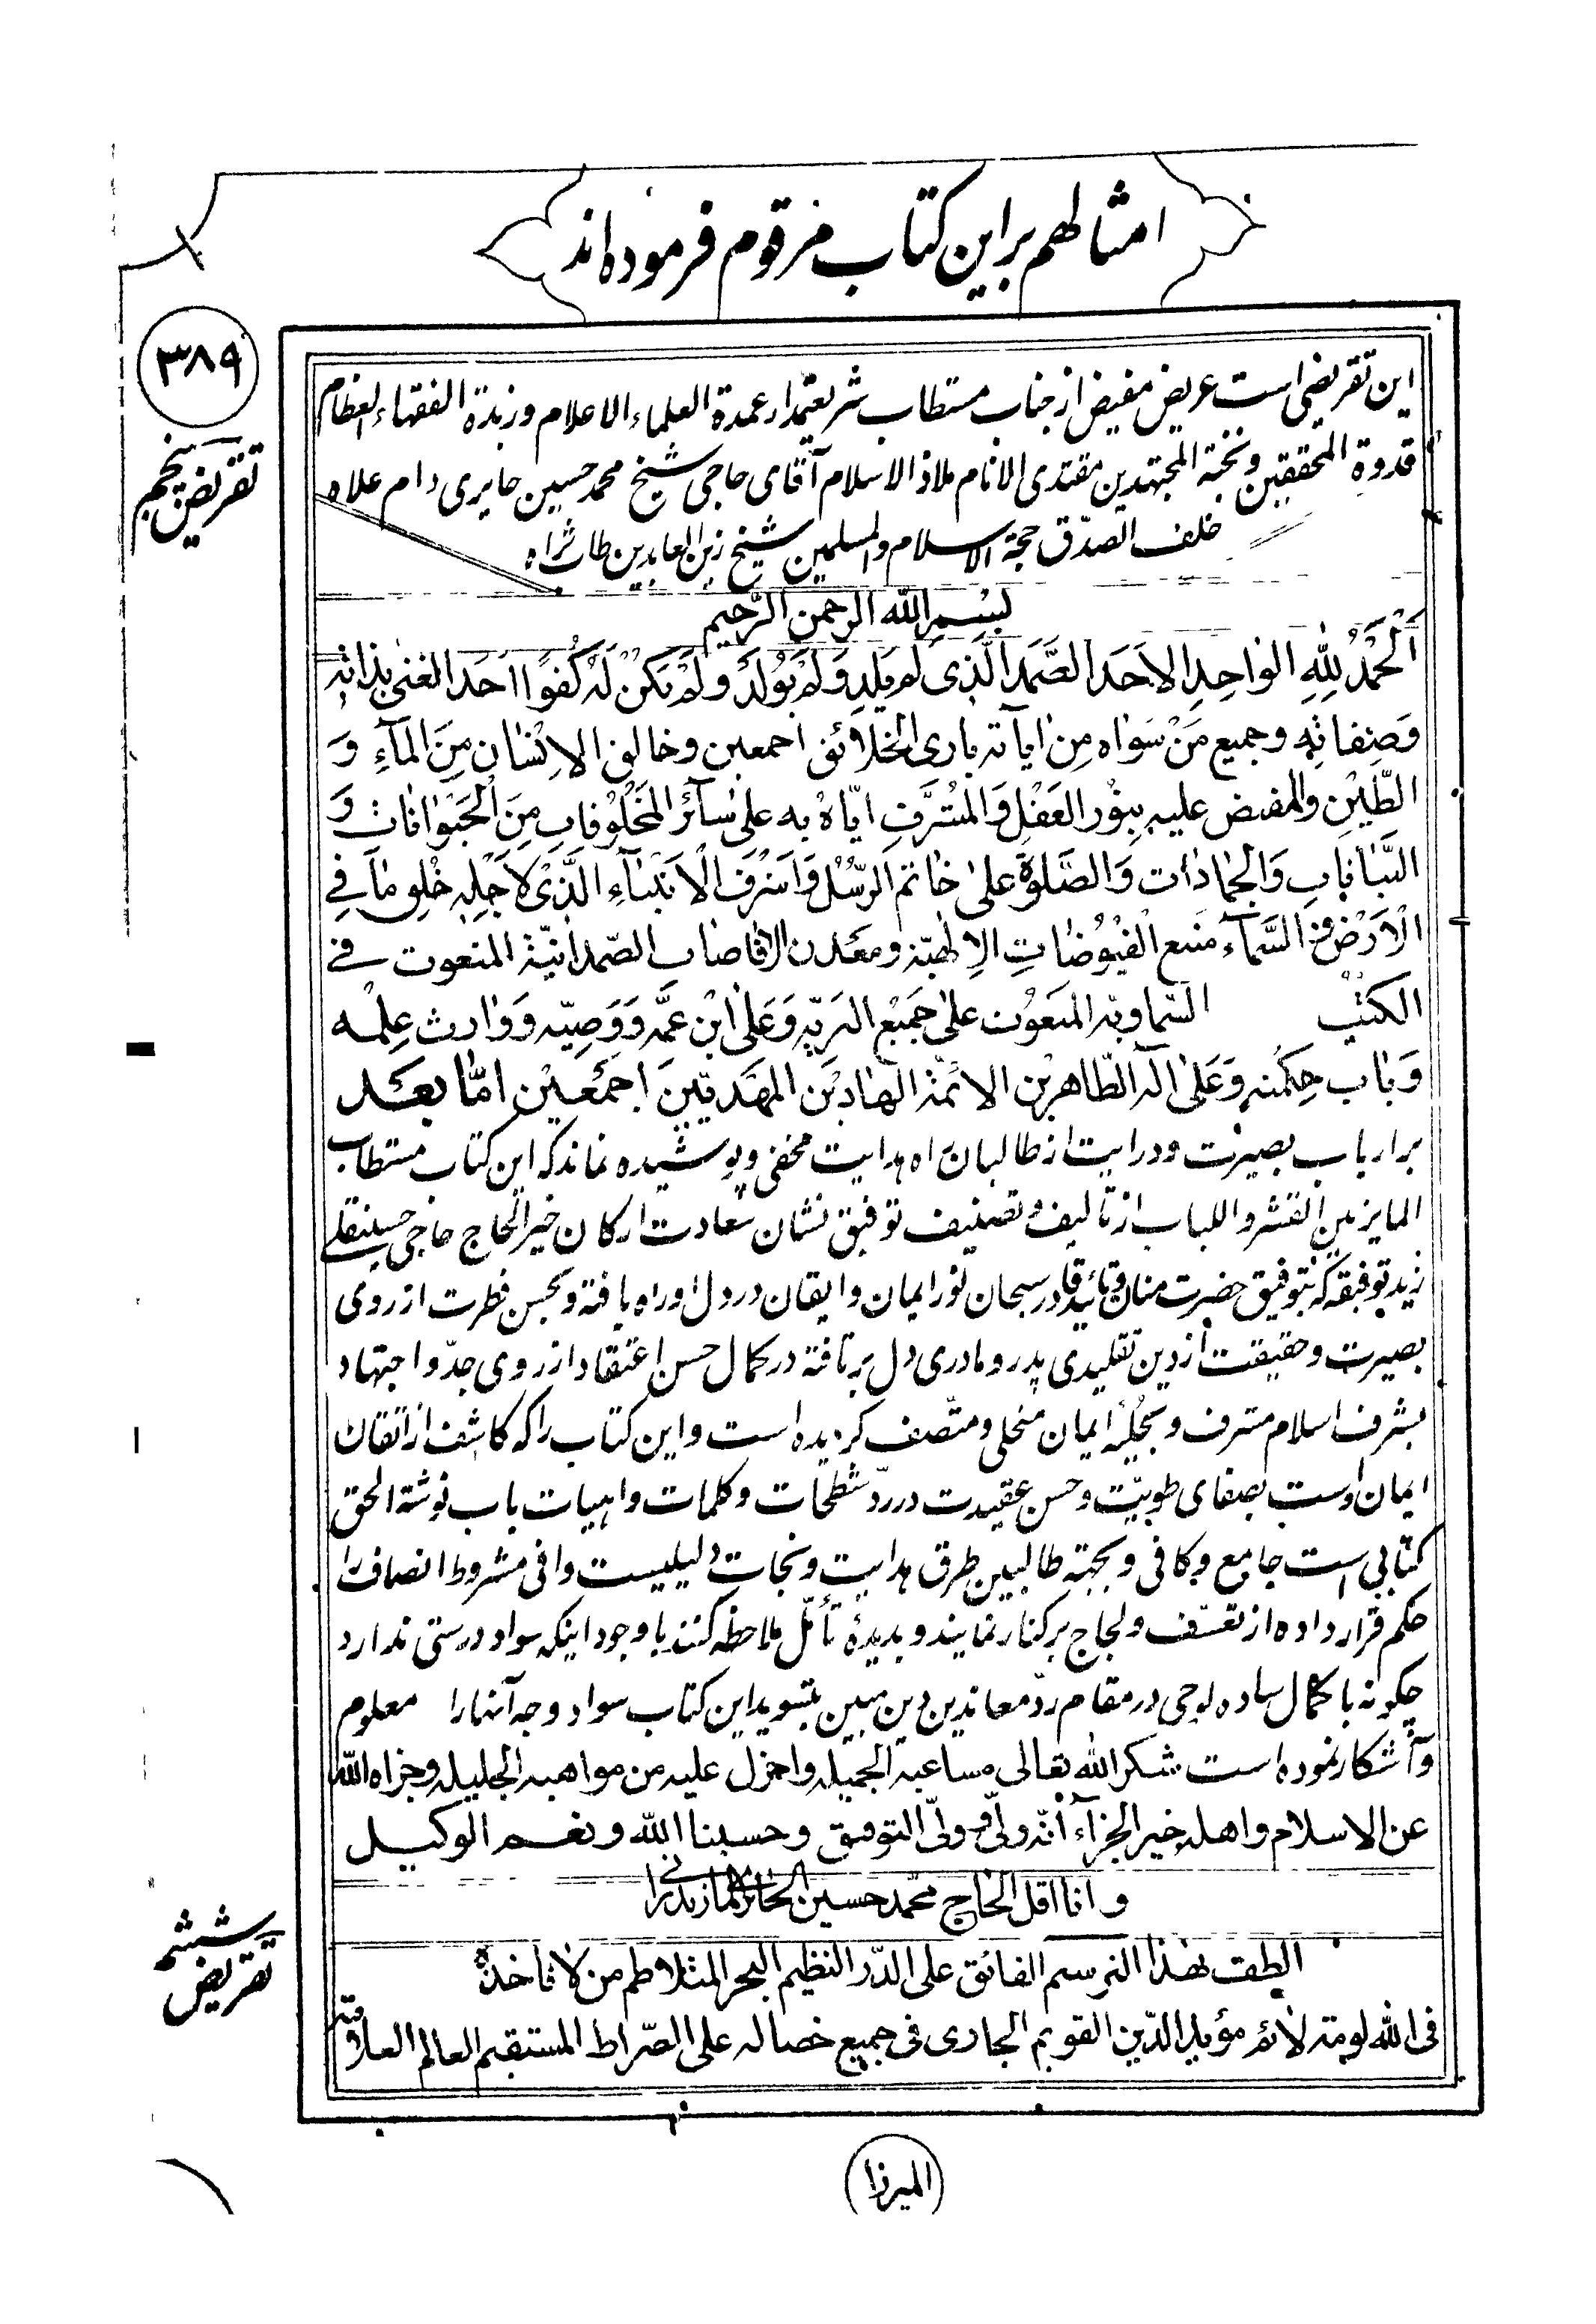 امثالهم بر این کتاب مرقوم فرموده‌اند
۳۸۹
تقریض پنجم
این تقریضی است عریض مفیض از جناب مستطاب شریعتمدار عمدة العلماء الاعلام و زبدة الفقهاء العظام
قدوة المحققین و نخبة المجتهدین مقتدی الانام ملاذ الاسلام آقای حاجی شیخ محمد حسین حایری دام علاه
خلف الصدق حجة الاسلام والمسلمین شیخ زین العابدین طاب ثراه
بِسْمِ الله الرحمن الرَّحیم
اَلْحَمْدُ لِلّٰهِ الواحِدِ الاَحَدِ الصَّمَدِ الَّذی لَم یَلِد وَلَمْ یوُلَدْ وَلَمْ یَکُنْ لَهُ کُفُوًا اَحَد الغنی بذاتِه
وَصِفاتِه وجمیع مَنْ سَواه مِن ایاته باری الخلائق اجمعین وخالق الاِنْسان مِنَ المآءِ وَ
الطّینِ والمفیض علیه بِنوْر العَقْلِ وَالمُشَرَّفِ ایّاهُ به علی سآئر المَخْلُوْقات مِنَ الحَیَوانات وَ
النَّباتاتِ وَالجَمادات وَالصَّلوةُ علیٰ خاتم الرّسُلْ وَاَشرَف الْاَنبیآءِ الَّذی لاَجلِهِ خُلِق مافِی
الْاَرَضْ والسَّمآء منبع الفیوُضاتِ الاِلهیّة ومَعدن الافاضات الصّمدانیّة المنعوت فی
الکتُبْ السّماویّه المَبعوُث علیٰ جَمیْع البریّه وَعَلی ابْن عَمّه وَوَصِیّه وَوارث عِلْمه
وَباب حِکمَته وَعَلیٰ آله الطّاهرین الائمّة الهادیْن المَهدیّیَن اجمَعیْن امّا بعد
بر ارباب بصیرت و درایت از طالبان راه هدایت مخفی و پوشیده نماند که این کتاب مستطاب
المایز بین القشر و اللباب از تألیف و تصنیف توفیق نشان سعادت ارکان خیر الحاج حاجی حسینقلی
زید توفیقه که بتوفیق حضرت منان و تائید قادر سبحان نور ایمان و ایقان در دل او راه یافته و بحسن فطرت از روی
بصیرت و حقیقت از دین تقلیدی پدر و مادری دل برتافته در کمال حسن اعتقاد از روی جدّ و اجتهاد
بشرف اسلام مشرف و بحلیه ایمان متحلی و متّصف گردیده است و این کتاب را که کاشف از اتقان
ایمان اوست بصفای طویّت و حسن عقیدت در ردّ شطحات و کلمات واهیات باب نوشته الحق
کتابی است جامع و کافی و بجهته طالبین طرق هدایت و نجات دلیلیست وافی مشروط انصاف را
حکم قرار داده از تعسّف و لجاج برکنار نمایند و بدیدهٔ تأمّل ملاحظه کنند با وجود اینکه سواد درستی ندارد
چگونه با کمال ساده لوحی در مقام ردّ معاندین دین مبین بتسوید این کتاب سواد وجه آنها را معلوم
و آشکار نموده است شکر الله تعالی مساعیه الجمیله واجزل علیه من مواهبه الجلیله وجزاه الله
عن الاسلام واهله خیر الجزآء انّه ولیّ ولیّ التوفیق وحسبنا الله ونعم الوکیل
وانا اقل الحاج محمّد حسین الحائری المازندرانی
تقریض ششم
الطف بهذا الترسم الفائق علی الدّر النظیم البحر المتلاطم من لا تأخذهُ
فی الله لومته لائم مؤید الدّین القویم الجاری فی جمیع خصاله علی الصّراط المستقیم العالم العلامه
المیرزا